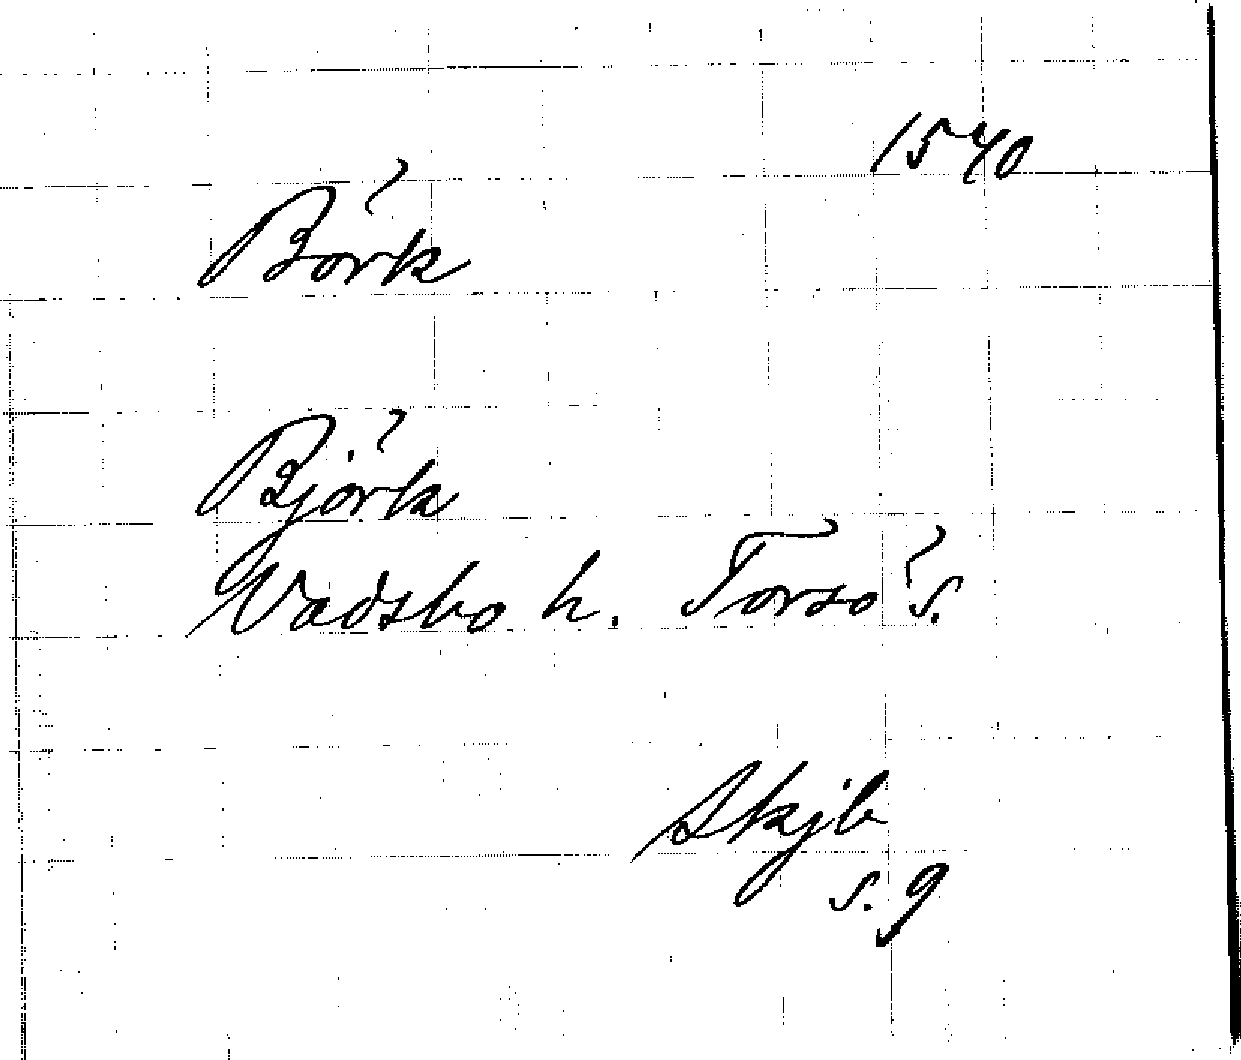 1540
Börk
Björk
Vadsbo h. Torsö s.
Skjb
s. 9